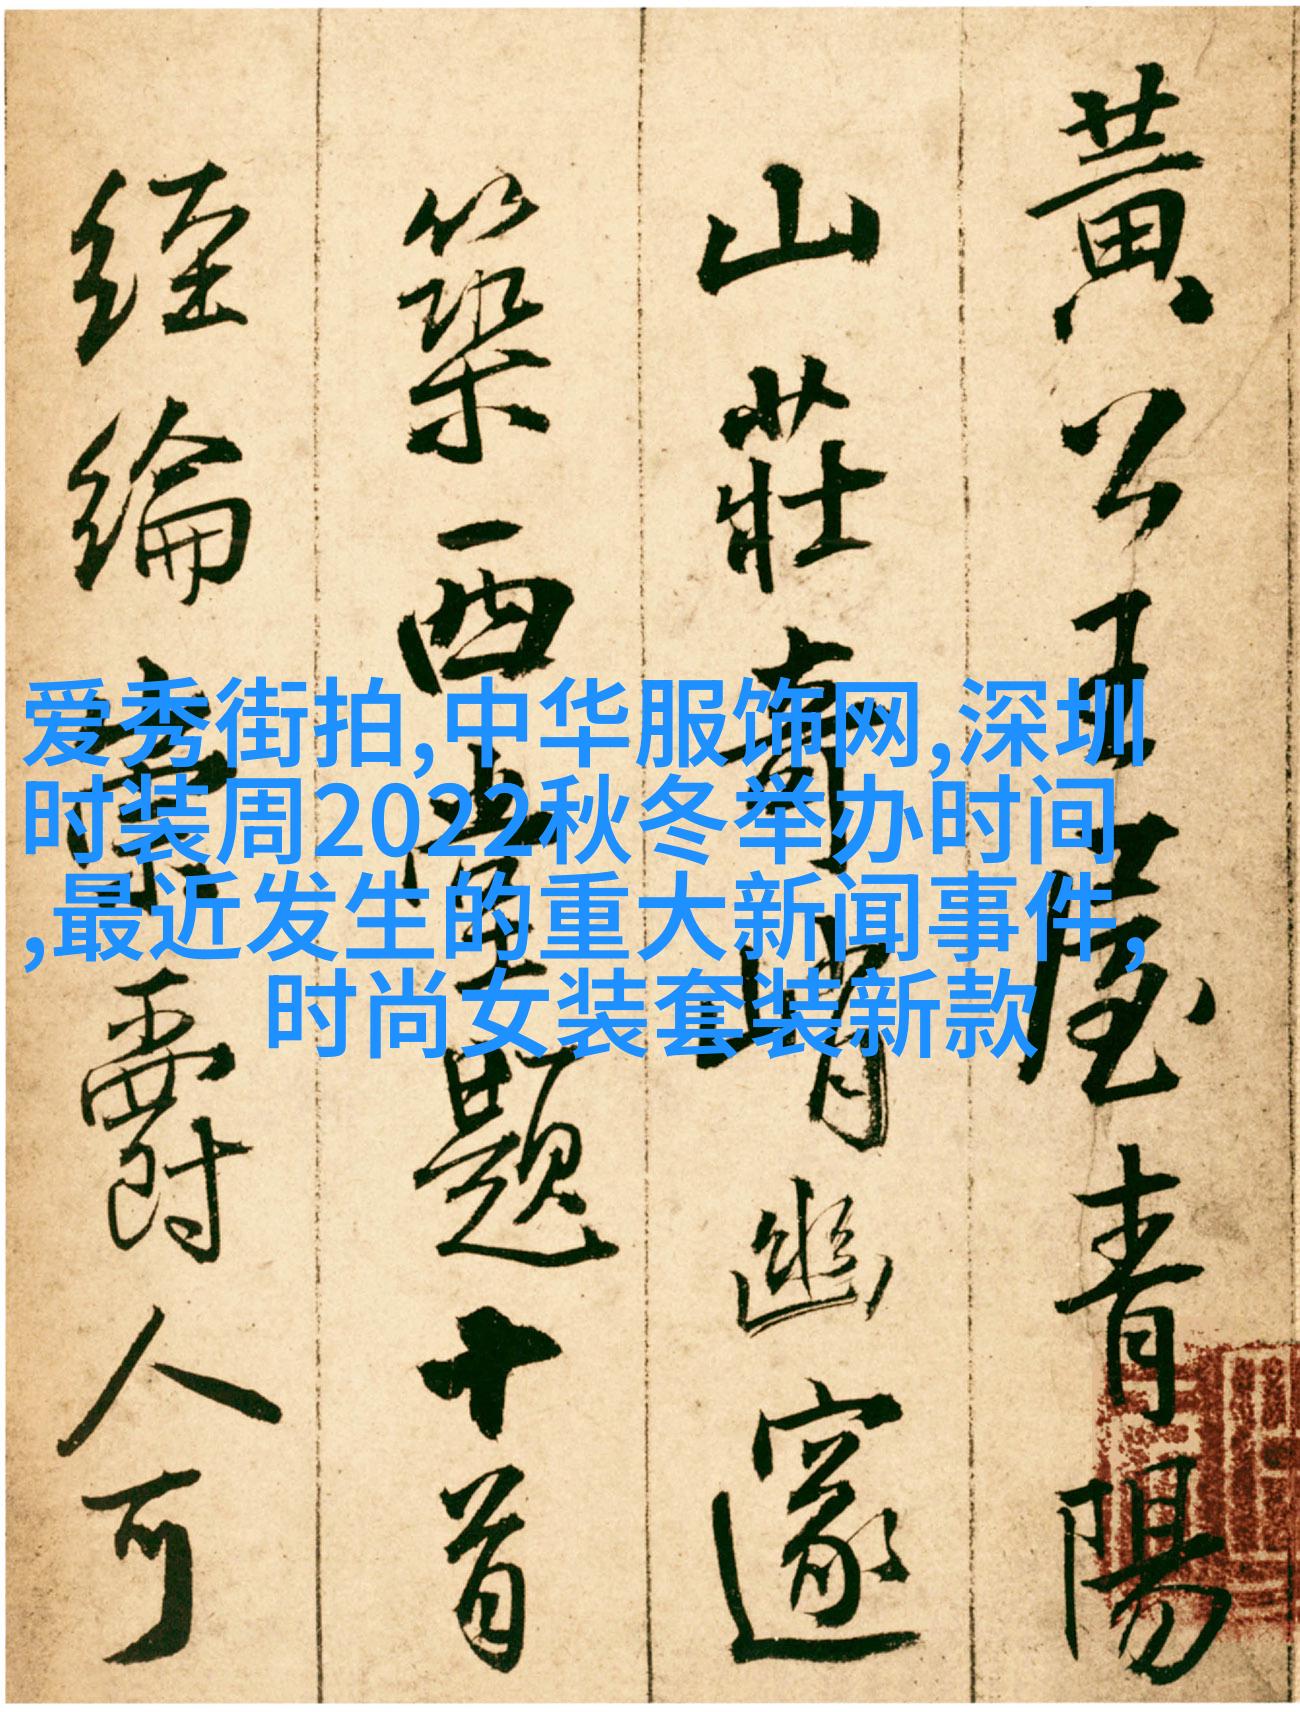 黃公王屋青陽
山莊奇峭幽邃
築西堂題十首
經綸爵人可
爱秀街拍,中华服饰网,深圳
时装周2022秋冬举办时间
,最近发生的重大新闻事件,
时尚女装套装新款